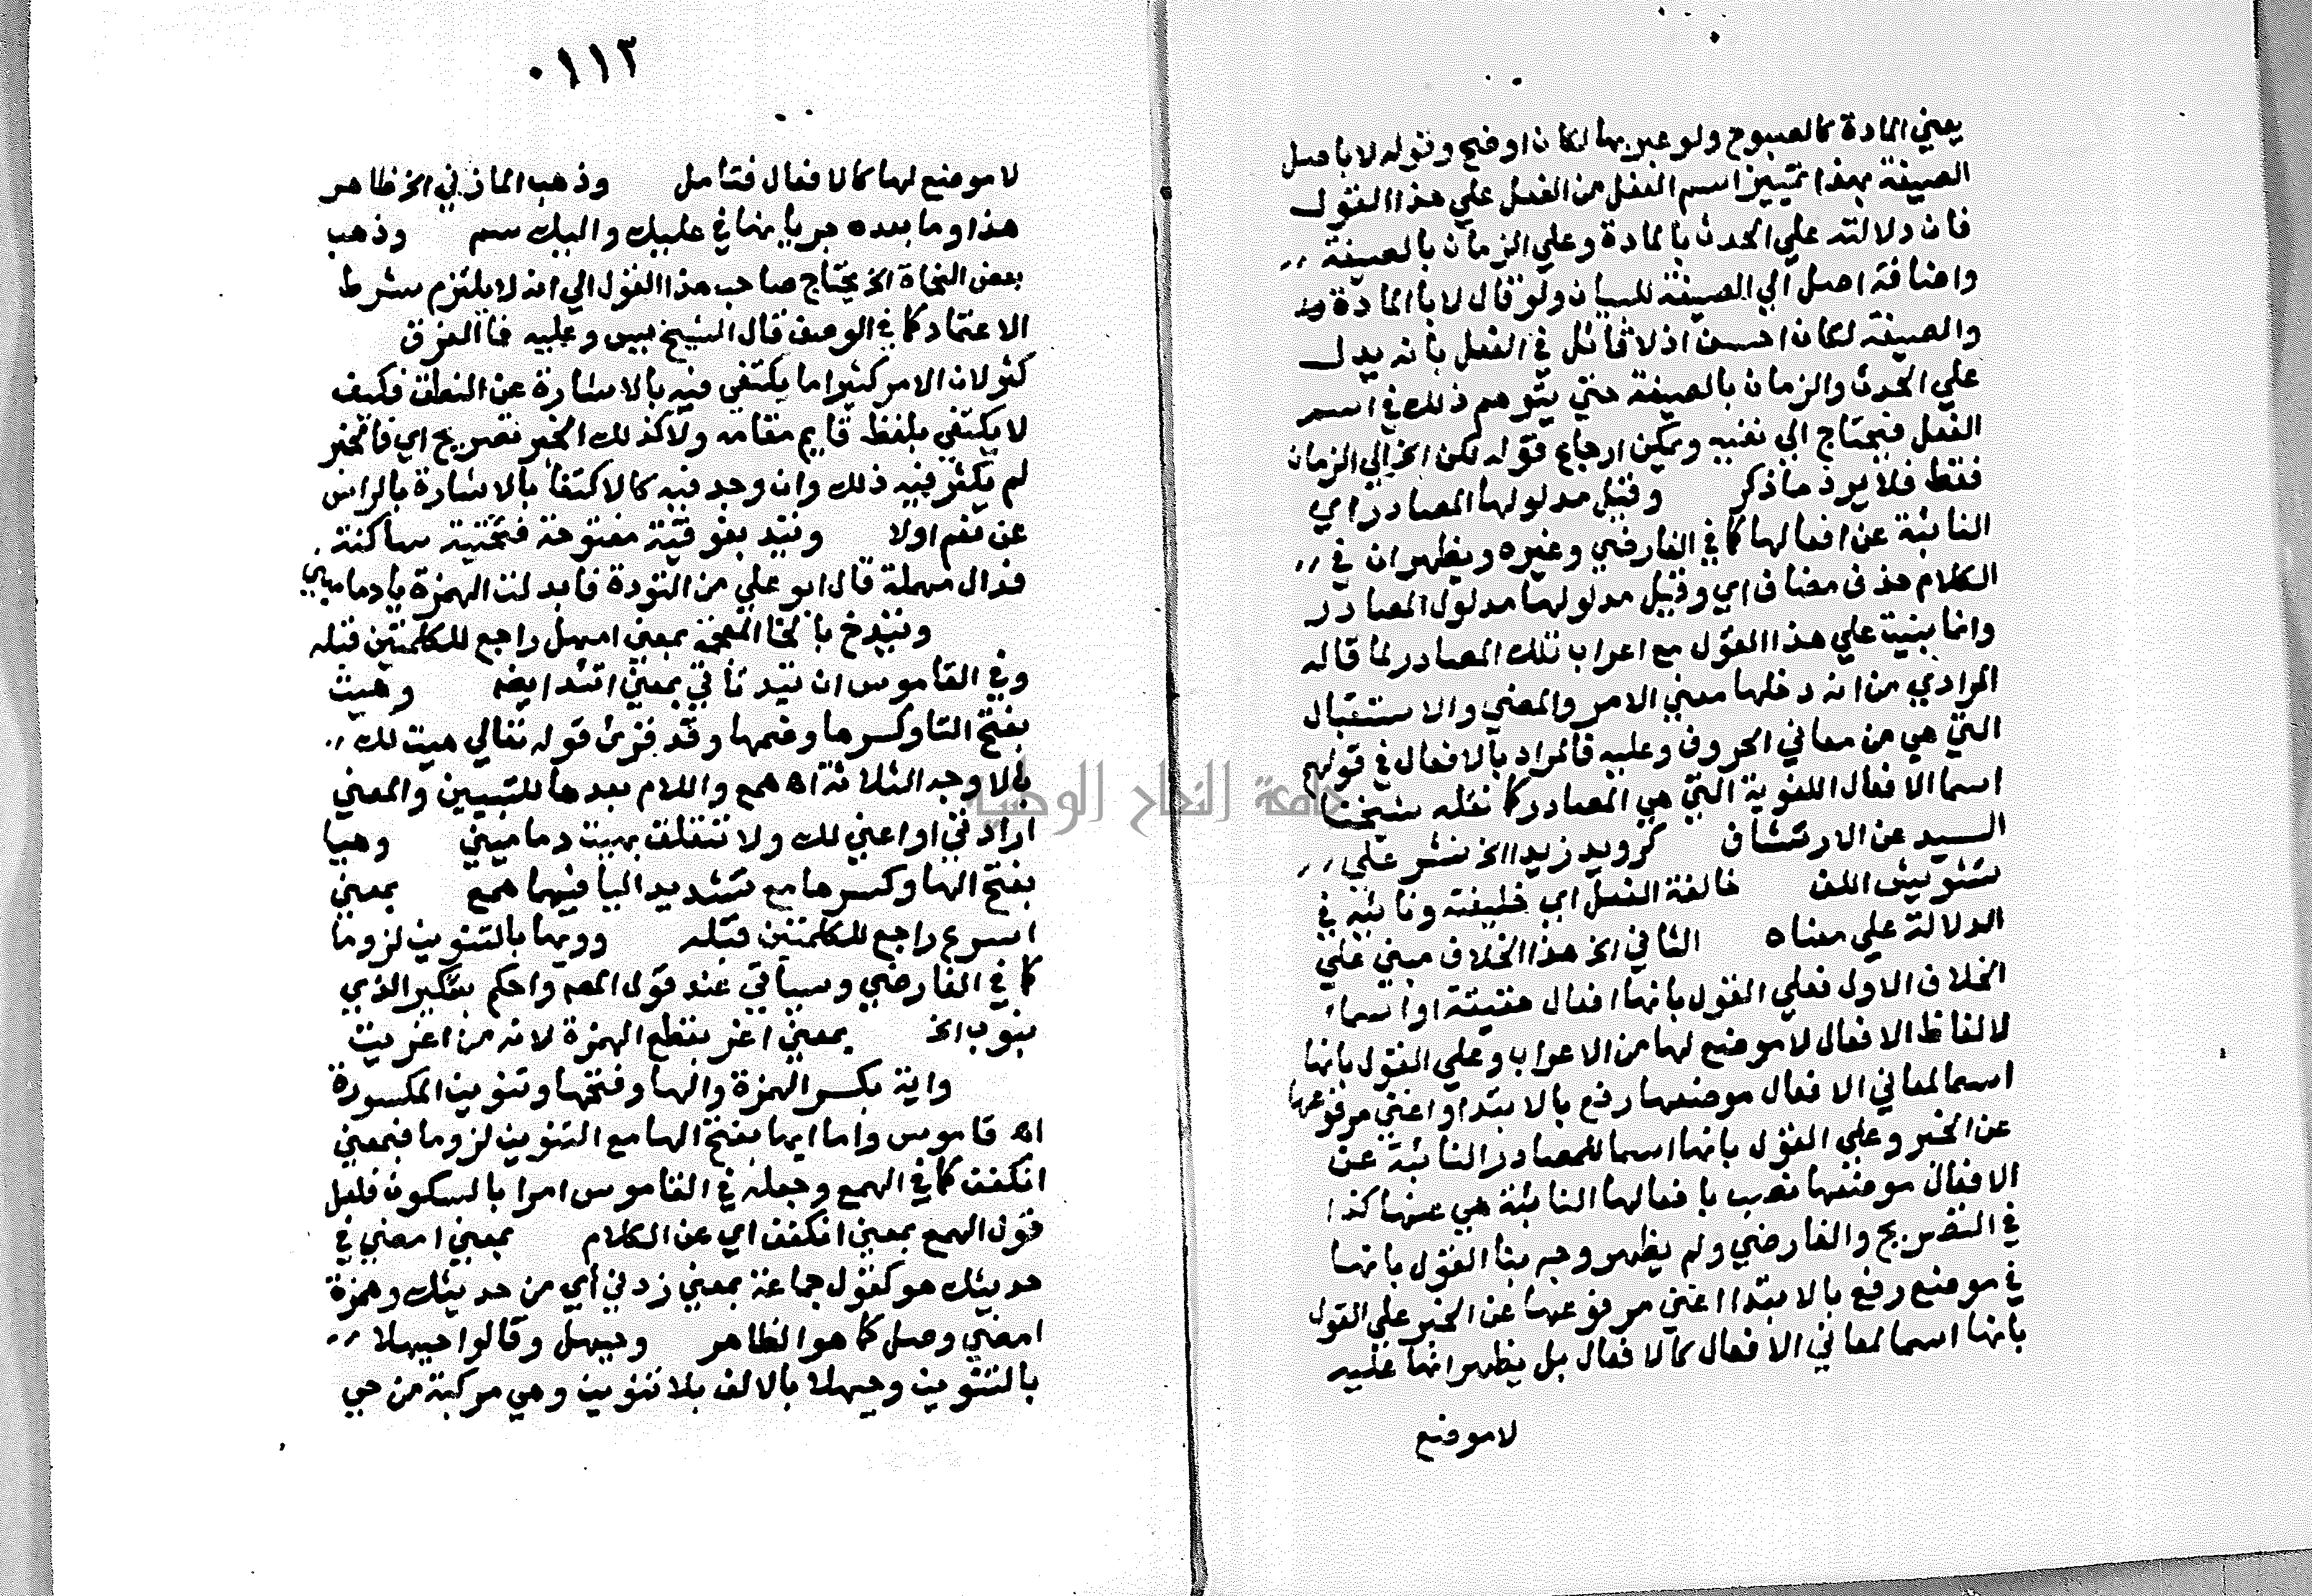 يعني المادة كالصبوح ولو عبر بها لكان اوضح وقوله لا باصل
الصيغة بهذا تمييز اسم الفعل من الفعل علي هذا القول
فان دلالته علي الحدث بالمادة وعلي الزمان بالصيغة
واضافة اصل الي الصيغة للبيان ولو قال لا بالمادة
والصيغة لكان احسن اذ لا قائل في الفعل بانه يدل
علي الحدث والزمان بالصيغة حتي يتوهم ذلك في اسم
الفعل فيحتاج الي نفيه ويمكن ارجاع قوله لكن الخ الي الزمان
فقط فلا يرد ما ذكر وقيل مدلولها المصادر اي
النائبة عن افعالها كما في الفارضي وغيره ويظهر ان في
الكلام حذف مضاف اي وقيل مدلولها مدلول المصادر
وانما بنيت علي هذا القول مع اعراب تلك المصادر لما قاله
المرادي من انه دخلها معني الامر والمضي والاستقبال
التي هي من معاني الحروف وعليه فالمراد بالافعال في قولهم
اسما الافعال اللغوية التي هي المصادر كما نقله شيخنا
السيد عن الارتشاف كرويد زيدا الخ نشر علي
تشويش اللف خالفة الفعل اي خليفته ونائبه في
الدلالة علي معناه الثاني الخ هذا الخلاف مبني علي
الخلاف الاول فعلي القول بانها افعال حقيقة او اسما
لالفاظ الافعال لا موضع لها من الاعراب وعلي القول بانها
اسما لمعاني الافعال موضعها رفع بالابتدا واغني مرفوعها
عن الخبر وعلي القول بانها اسما للمصادر النائبة عن
الافعال موضعها نصب بافعالها النائبة هي عنها كذا
في التصريح والفارضي ولم يظهر وجه بنا القول بانها
في موضع رفع بالابتدا اغني مرفوعها عن الخبر علي القول
بانها اسما لمعاني الافعال كالافعال بل يظهر انها عليه
لا موضع
٠١١٣
لا موضع لها كالافعال فتأمل وذهب المازني الخ ظاهر
هذا وما بعده جريانها في عليك واليك سم وذهب
بعض النحاة الخ يحتاج صاحب هذا القول الي انه لا يلتزم شرط
الاعتماد كما في الوصف قال الشيخ يس وعليه فما الفرق
كثر لان الامر كثيرا ما يكتفي فيه بالاشارة عن النطق فكيف
لا يكتفي بلفظ قايم مقامه ولا كذلك الخبر تصريح اي فالخبر
لم يكثر فيه ذلك وان وجد فيه كالاكتفا بالاشارة بالراس
عن نعم او لا وتيد بفوقية مفتوحة فتحتية ساكنة
فدال مهملة قال ابو علي من التؤدة فابدلت الهمزة يا دماميني
وتيدخ بالخا المعجمة بمعني امهل راجع للكلمتين قبله
وفي القاموس ان تيد تاتي بمعني اتئد ايضه وهيت
بفتح التا وكسرها وضمها وقد قرئ قوله تعالي هيت لك
بالاوجه الثلاثة اه همع واللام بعدها للتبيين والمعني
ارادتي او اعني لك ولا تتعلق بهيت دماميني وهيا
بفتح الها وكسرها مع تشديد اليا فيهما همع بمعني
اسرع راجع للكلمتين قبله وويها بالتنوين لزوما
كما في الفارضي وسياتي عند قول المصـ واحكم بتنكير الذي
ينون الخ بمعني اغر بقطع الهمزة لانه من اغريت
واية بكسر الهمزة والها وفتحها وتنوين المكسورة
اه قاموس واما ايها بفتح الها مع التنوين لزوما فبمعني
انكفف كما في الهمع وجعله في القاموس امرا بالسكوت فلعل
قول الهمع بمعني انكفف اي عن الكلام بمعني امضي في
حديثك هو كقول جماعة بمعني زدني اي من حديثك وهمزة
امضي وصل كما هو الظاهر وحيهل وقالوا حيهلا
بالتنوين وحيهلا بالالف بلا تنوين وهي مركبة من حي
جامعة النجاح الوطنية